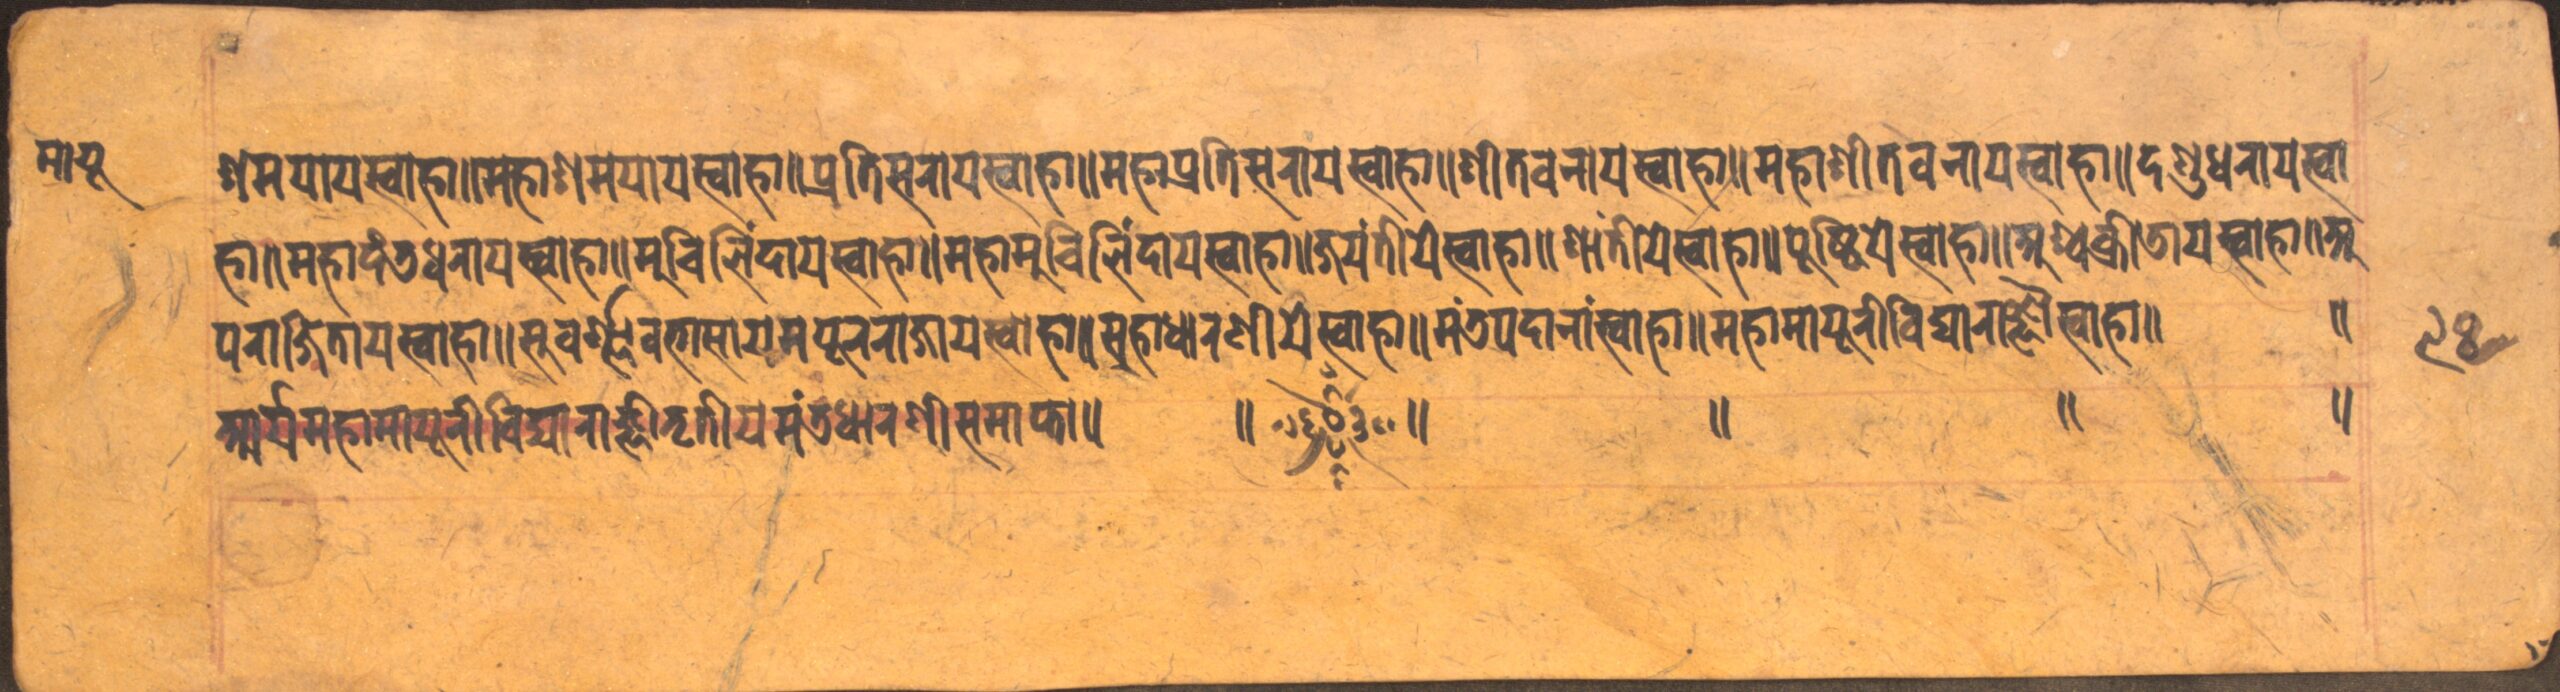 मायू
शमयायस्वाहा॥महाशमयायस्वाहा॥प्रतिसरायस्वाहा॥महाप्रतिसरायस्वाहा॥शीतवनायस्वाहा॥महाशीतवनायस्वाहा॥दशुधरायस्वा
हा॥महादंतधरायस्वाहा॥मुचिलिंदायस्वाहा॥महामुचिलिंदायस्वाहा॥जयंतीयेस्वाहा॥शांतीयेस्वाहा॥पुष्टियेस्वाहा॥अश्वक्रीडायस्वाहा॥अ
पराजितायस्वाहा॥सुवर्ण्णावभासायमयूरराजायस्वाहा॥महाधारणीयेस्वाहा॥मंत्रपदानांस्वाहा॥महामायूरीविद्याराज्ञौस्वाहा॥ ॥
आर्यमहामायूरीविद्याराज्ञीतृतीयमंत्रधारणीसमाप्ता॥ ॥ ॥ ॥ ॥ ॥
१४